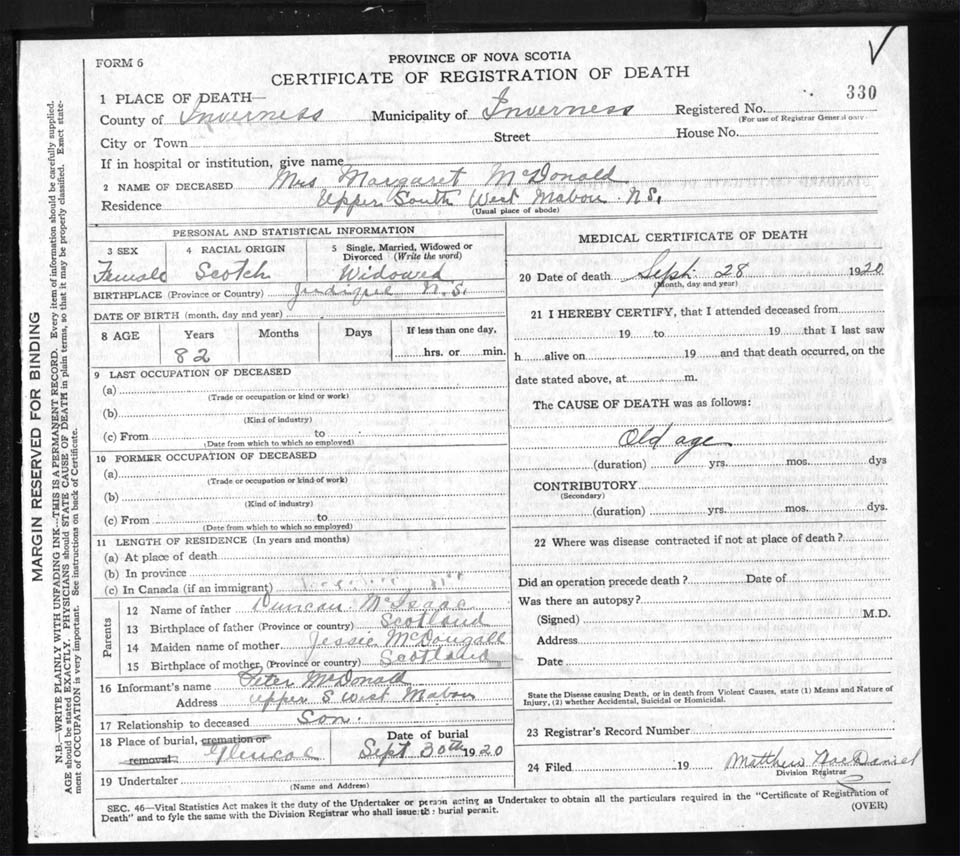 FORM 6
PROVINCE OF NOVA SCOTIA
CERTIFICATE OF REGISTRATION OF DEATH
330
1 PLACE OF DEATH—
County of Inverness Municipality of Inverness Registered No.
(For use of Registrar General only)
City or Town Street House No.
If in hospital or institution, give name
2 NAME OF DECEASED Mrs Margaret McDonald
Residence Upper South West Mabou N.S.
(Usual place of abode)
PERSONAL AND STATISTICAL INFORMATION
3 SEX 4 RACIAL ORIGIN 5 Single, Married, Widowed or Divorced (Write the word)
Female Scotch Widowed
BIRTHPLACE (Province or Country) Judique N.S.
DATE OF BIRTH (month, day and year)
8 AGE Years Months Days If less than one day,
82 hrs. or min.
9 LAST OCCUPATION OF DECEASED
(a)
(Trade or occupation or kind or work)
(b)
(Kind of industry)
(c) From to
(Date from which to which so employed)
10 FORMER OCCUPATION OF DECEASED
(a)
(Trade or occupation or kind of work)
(b)
(Kind of industry)
(c) From to
(Date from which to which so employed)
11 LENGTH OF RESIDENCE (In years and months)
(a) At place of death
(b) In province
(c) In Canada (if an immigrant)
Parents
12 Name of father Duncan McIsaac
13 Birthplace of father (Province or country) Scotland
14 Maiden name of mother Jessie McDougall
15 Birthplace of mother (Province or country) Scotland
16 Informant's name Peter McDonald
Address Upper S West Mabou
17 Relationship to deceased Son
18 Place of burial, cremation or removal Glencoe
Date of burial
Sept 30th 1920
19 Undertaker
(Name and Address)
MEDICAL CERTIFICATE OF DEATH
20 Date of death Sept 28 1920
(Month, day and year)
21 I HEREBY CERTIFY, that I attended deceased from
19 to 19 that I last saw
h alive on 19 and that death occurred, on the
date stated above, at m.
The CAUSE OF DEATH was as follows:
Old age
(duration) yrs. mos. dys
CONTRIBUTORY
(Secondary)
(duration) yrs. mos. dys.
22 Where was disease contracted if not at place of death?
Did an operation precede death? Date of
Was there an autopsy?
(Signed) M.D.
Address
Date
State the Disease causing Death, or in death from Violent Causes, state (1) Means and Nature of
Injury, (2) whether Accidental, Suicidal or Homicidal.
23 Registrar's Record Number
24 Filed 19 Matthew MacDaniel
Division Registrar
SEC. 46—Vital Statistics Act makes it the duty of the Undertaker or person acting as Undertaker to obtain all the particulars required in the "Certificate of Registration of
Death" and to fyle the same with the Division Registrar who shall issue the burial permit.
(OVER)
MARGIN RESERVED FOR BINDING
N.B.—WRITE PLAINLY WITH UNFADING INK—THIS IS A PERMANENT RECORD. Every item of information should be carefully supplied.
AGE should be stated EXACTLY. PHYSICIANS should STATE CAUSE OF DEATH in plain terms, so that it may be properly classified. Exact state-
ment of OCCUPATION is very important. See instructions on back of Certificate.